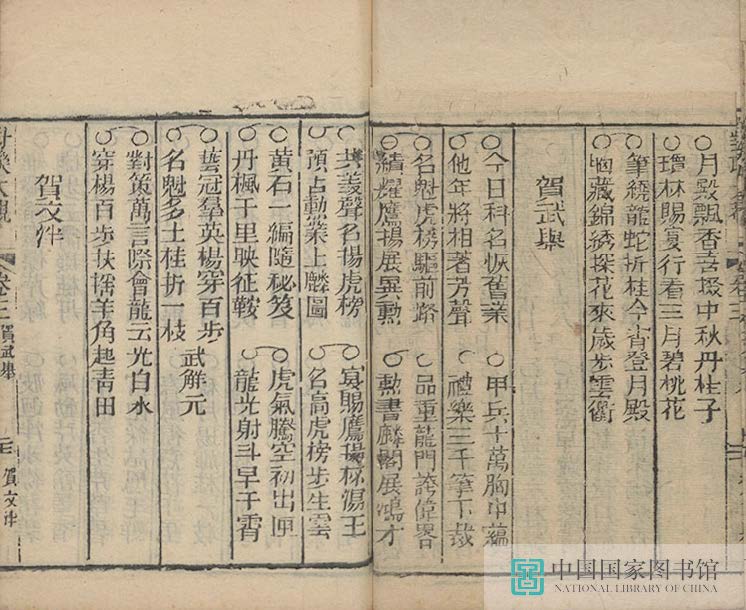 月殿飄香喜掇中秋丹桂子
瓊林賜宴行看三月碧桃花
筆繞龍蛇折桂今宵登月殿
胸藏錦綉探花來歲步雲衢
賀武舉
今日科名恢舊業 甲兵十萬胸中蘊
他年將相著芳聲 禮樂三千筆下發
名魁虎榜驅前路 品重龍門誇偉畧
績耀鷹揚展異勳 勳書麟閣展鴻才
共羨聲名揚虎榜 宴賜鷹揚杯瀉玉
預占勳業上麟圖 名高虎榜步生雲
黃石一編隨秘笈 虎氣騰空初出匣
丹楓千里映征鞍 龍光射斗早干霄
藝冠羣英楊穿百步
武解元
名魁多士桂折一枝
對策萬言際會龍云光白水
穿楊百步扶搖羊角起青田
賀文泮
大觀
賀武舉
賀文泮
中国国家图书馆
NATIONAL LIBRARY OF CHINA